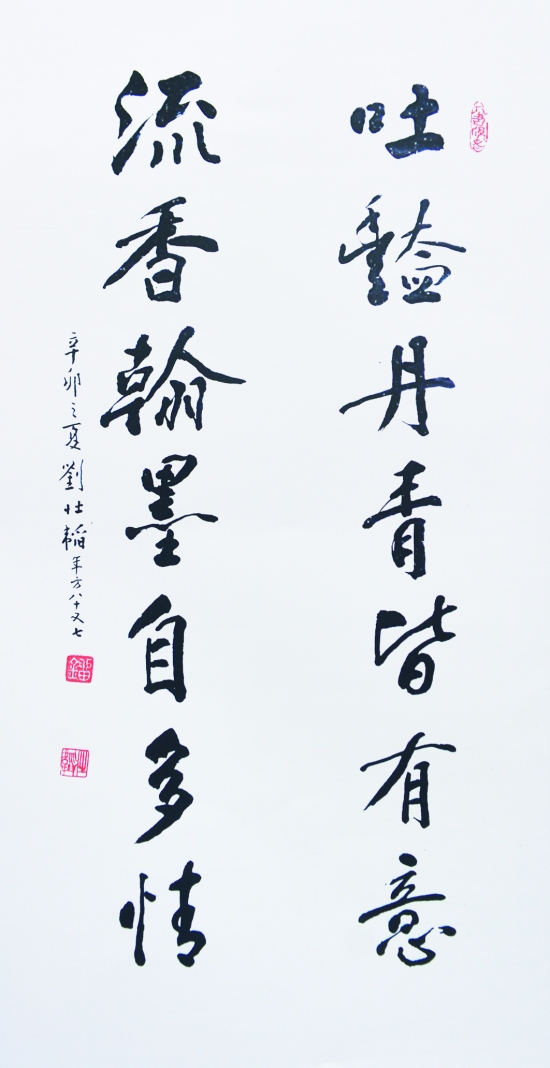 吐豔丹青皆有意
流香翰墨自多情
辛卯之夏劉仕韜年方八十又七